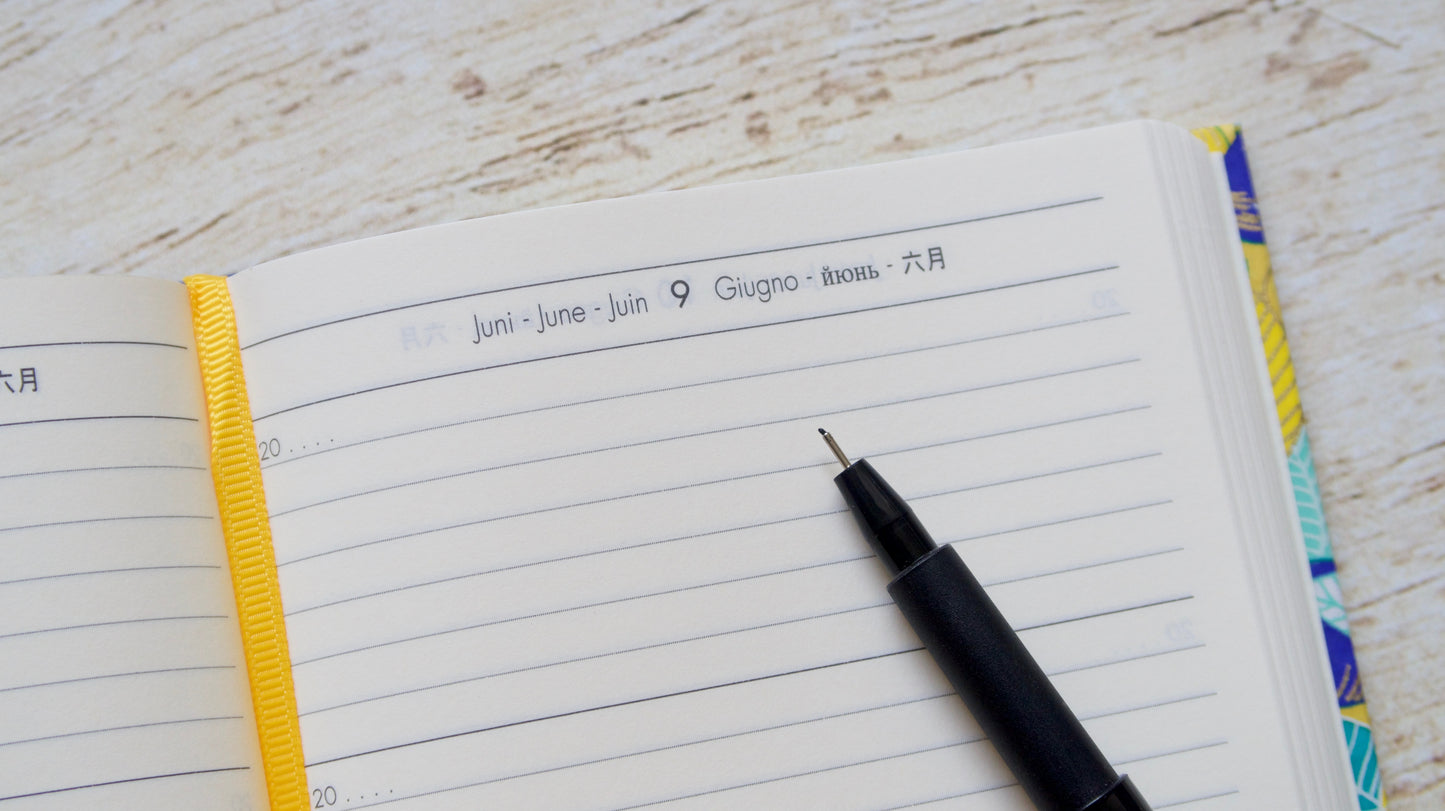 六月
Juni - June - Juin 9 Giugno - йюнь - 六月
20 . . . .
20 . . . .